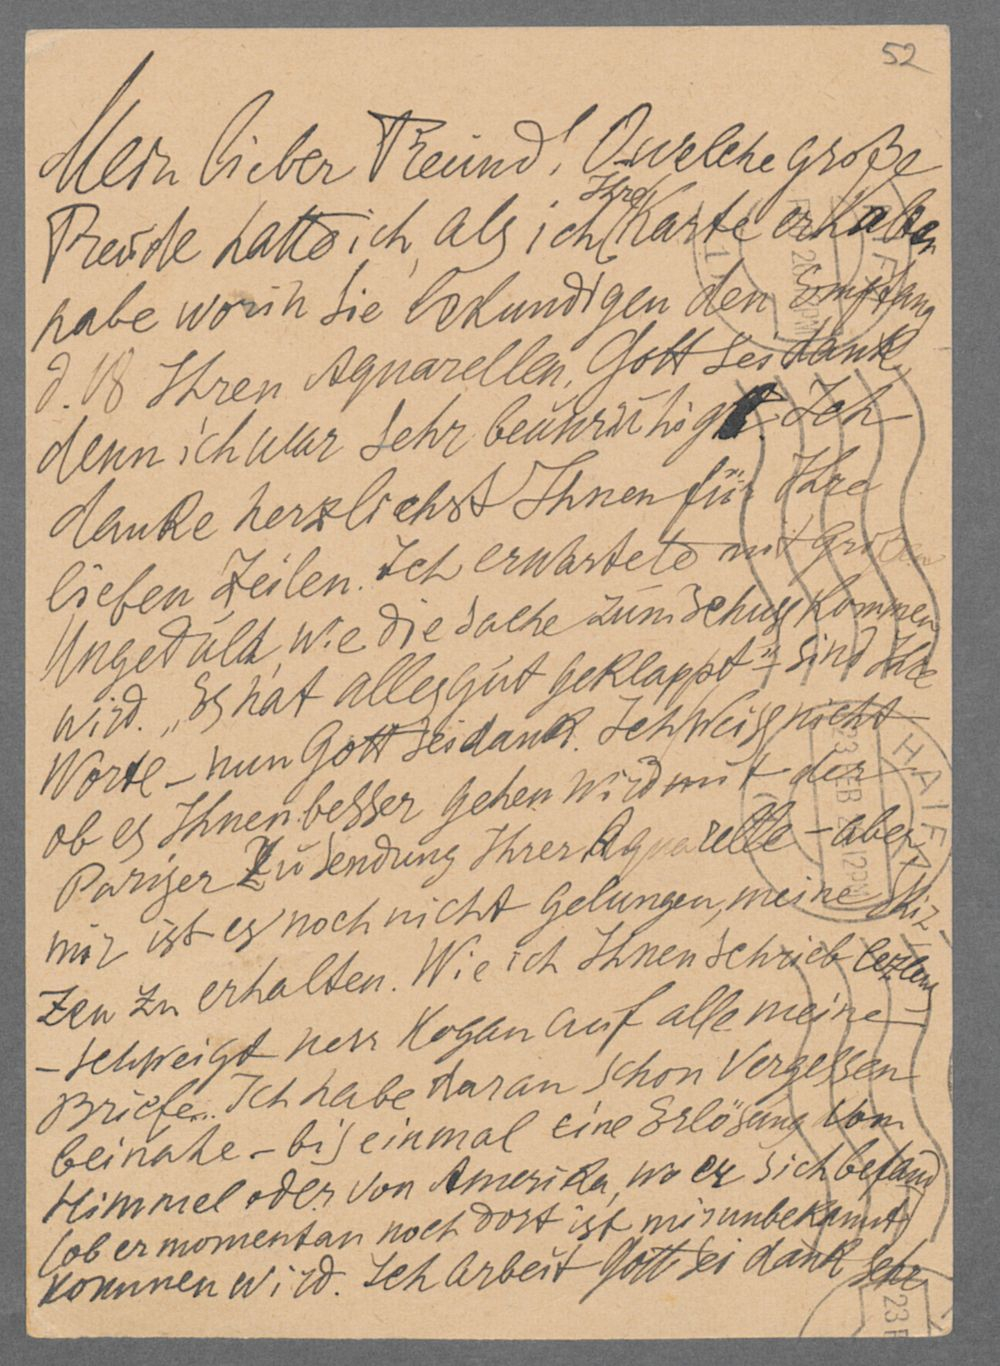 52
Mein lieber Freund! O welche große
Freude hatte ich, als ich Ihre Karte erhalten
habe worin Sie bekundigen den Empfang
d. 18 Ihren Aquarellen, Gott sei dank,
denn ich war sehr beunruhigt. Ich
danke herzlichst Ihnen für Ihre
lieben Zeilen. Ich erwartete mit großen
Ungeduld, wie die Sache zum Schuss kommen
wird. „Es hat alles gut geklappt" – sind Ihre
Worte – nun Gott sei dank. Ich weiss nicht
ob es Ihnen besser gehen wird mit der
Pariser Zusendung Ihrer Aquarelle – aber
mir ist es noch nicht gelungen, meine Skiz-
zen zu erhalten. Wie ich Ihnen schrieb
– schweigt herr Kogan auf alle meine
Briefe.. Ich habe daran schon vergessen
beinahe – bis einmal eine Erlösung vom
Himmel oder von Amerika, wo er sich befand
(ob er momentan noch dort ist mir unbekannt)
kommen wird. Ich arbeit Gott sei dank sehr
HAIFA
23 FEB
12PM